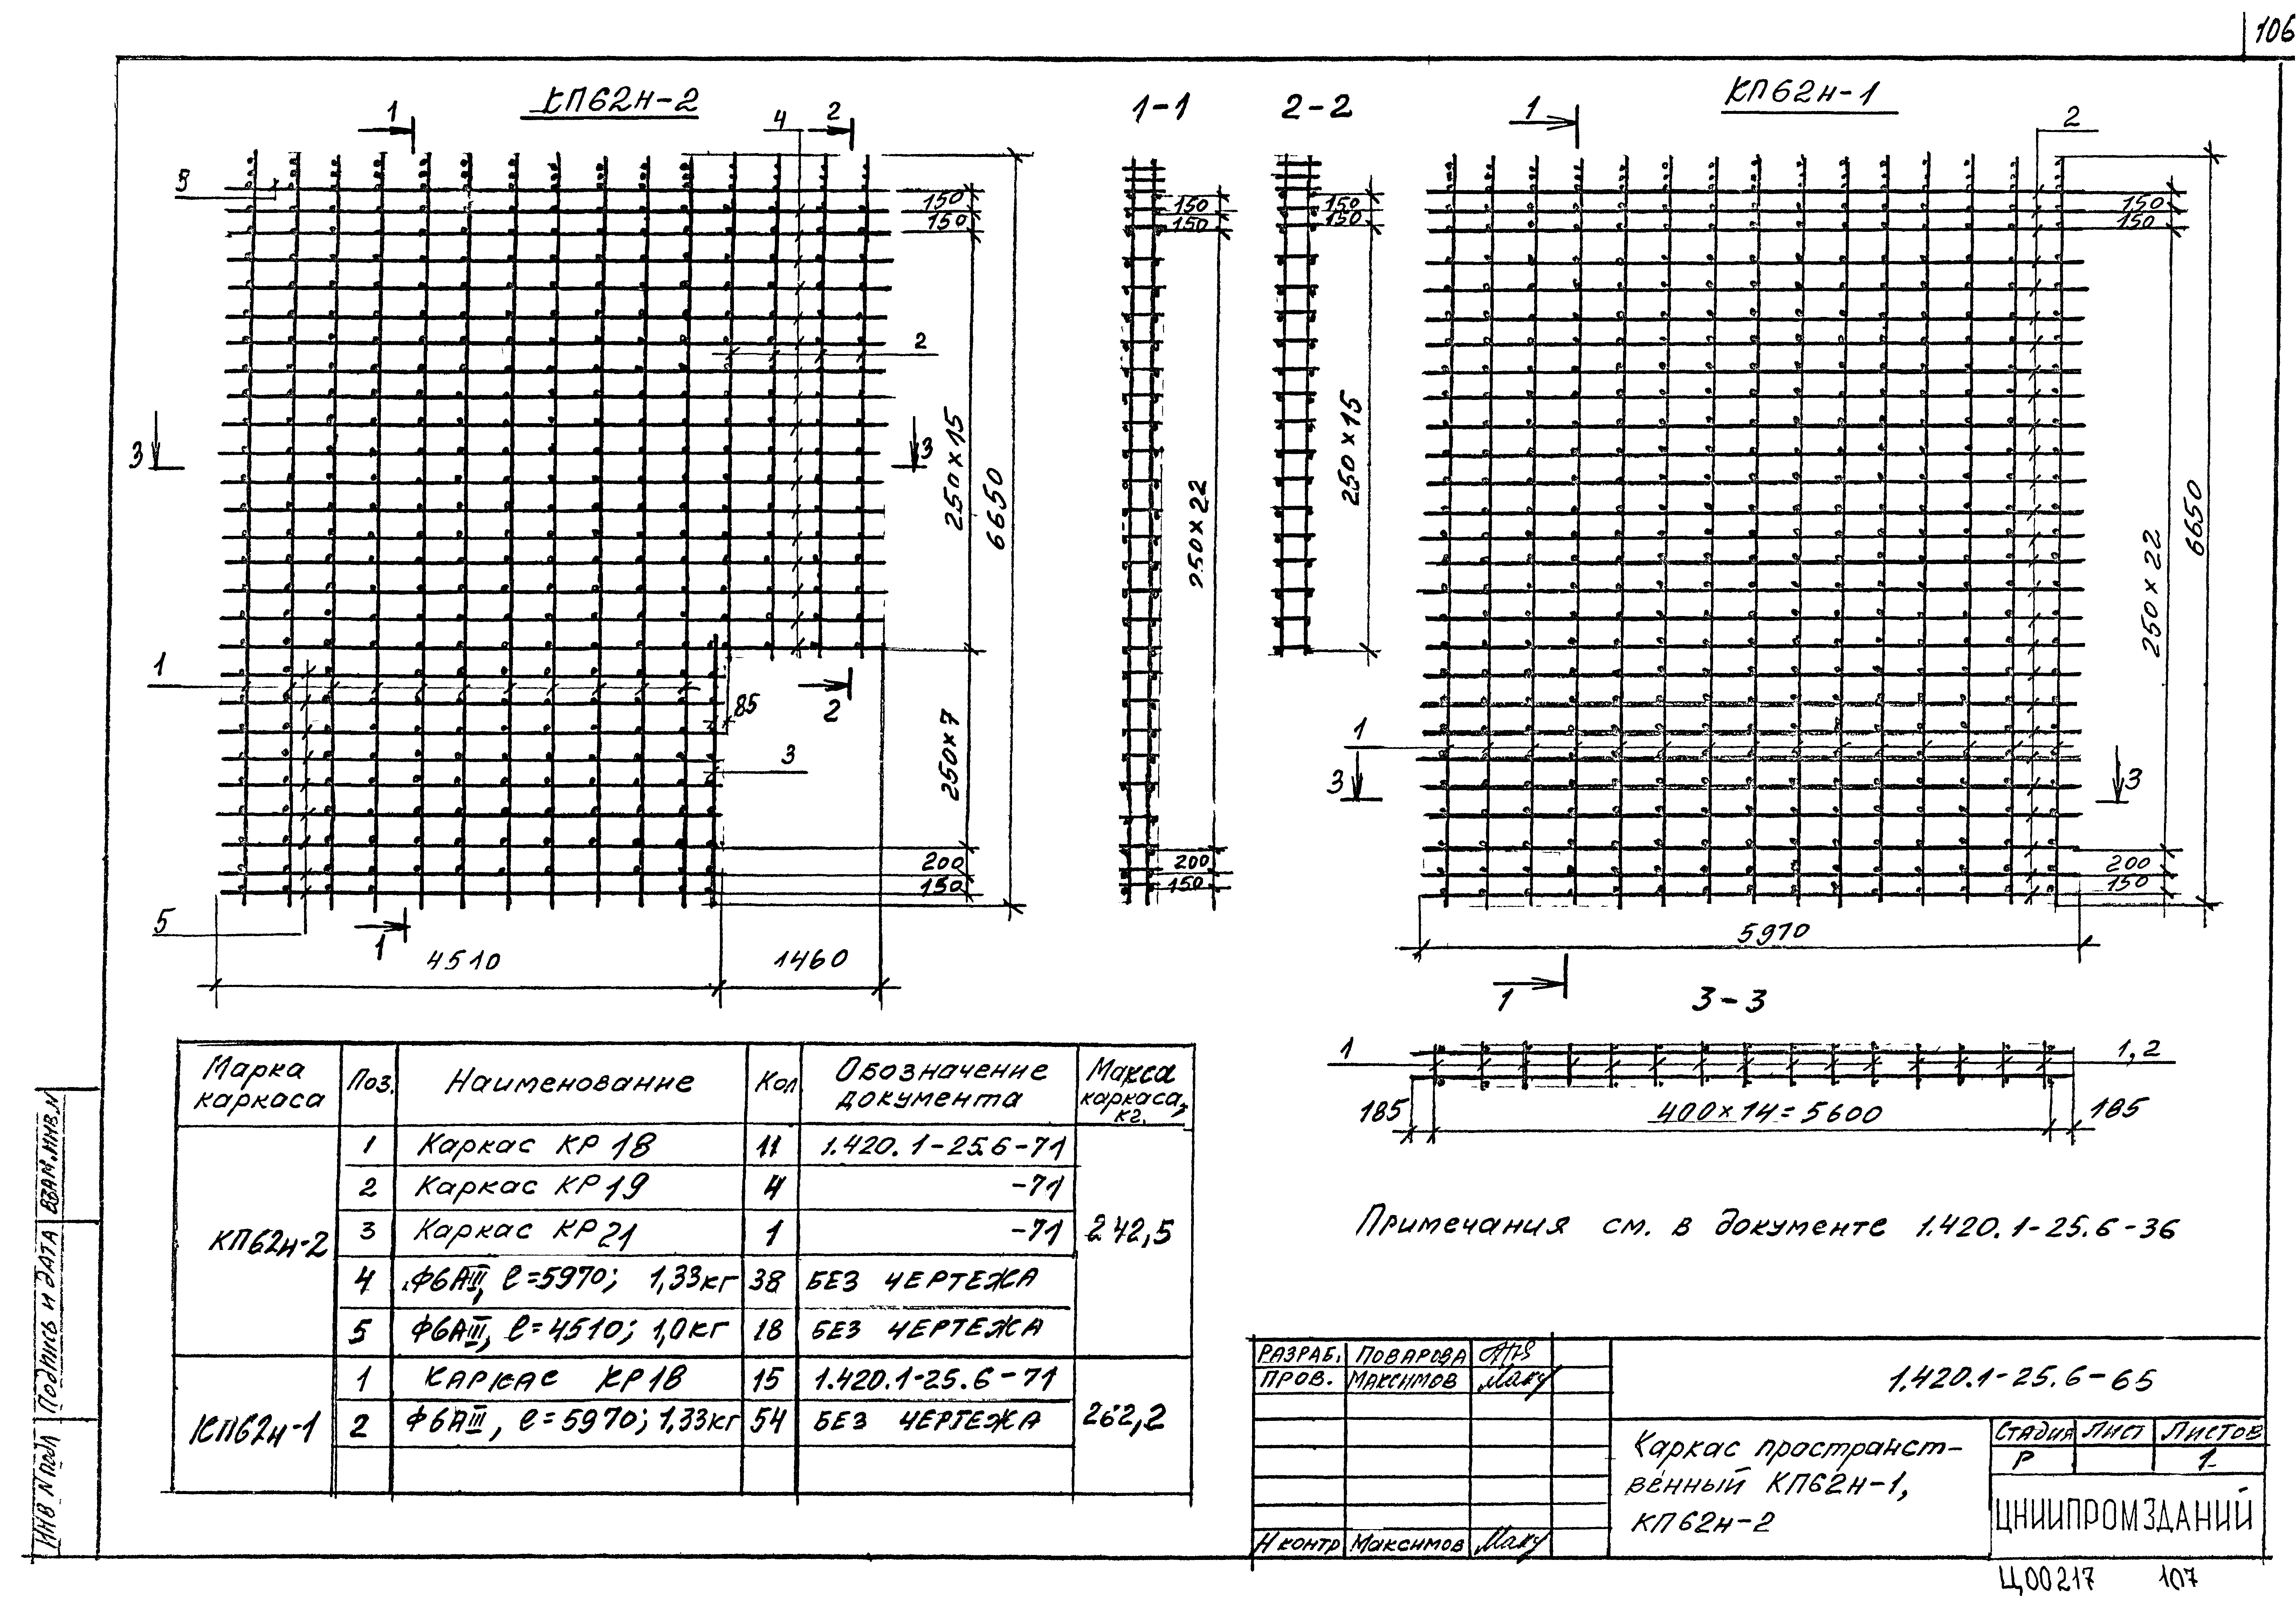 106
КП62н-2
1-1
2-2
КП62н-1
1
4
2
1
2
3
150
150
150
150
150
150
150
150
2
3
3
250×15
6650
250×22
250×15
250×22
6650
1
85
2
3
250×7
1
3
3
200
150
200
150
200
150
5
1
4510
1460
5970
1
3-3
1
1,2
185
400×14=5600
185
Марка каркаса | Поз. | Наименование | Кол | Обозначение документа | Масса каркаса, кг.
КП62н-2 | 1 | Каркас КР18 | 11 | 1.420.1-25.6-71 | 242,5
2 | Каркас КР19 | 4 | -71
3 | Каркас КР21 | 1 | -71
4 | Ф6АIII, ℓ=5970; 1,33кг | 38 | БЕЗ ЧЕРТЕЖА
5 | Ф6АIII, ℓ=4510; 1,0кг | 18 | БЕЗ ЧЕРТЕЖА
КП62н-1 | 1 | КАРКАС КР18 | 15 | 1.420.1-25.6-71 | 262,2
2 | Ф6АIII, ℓ=5970; 1,33кг | 54 | БЕЗ ЧЕРТЕЖА
Примечания см. в документе 1.420.1-25.6-36
РАЗРАБ. ПОВАРОВА
ПРОВ. МАКСИМОВ
Н контр Максимов
1.420.1-25.6-65
Каркас пространст-
венный КП62н-1,
КП62н-2
СТАДИЯ ЛИСТ ЛИСТОВ
Р 1
ЦНИИПРОМЗДАНИЙ
Ц00217 107
ИНВ N подл
Подпись и дата
ВЗАМ.ИНВ.N